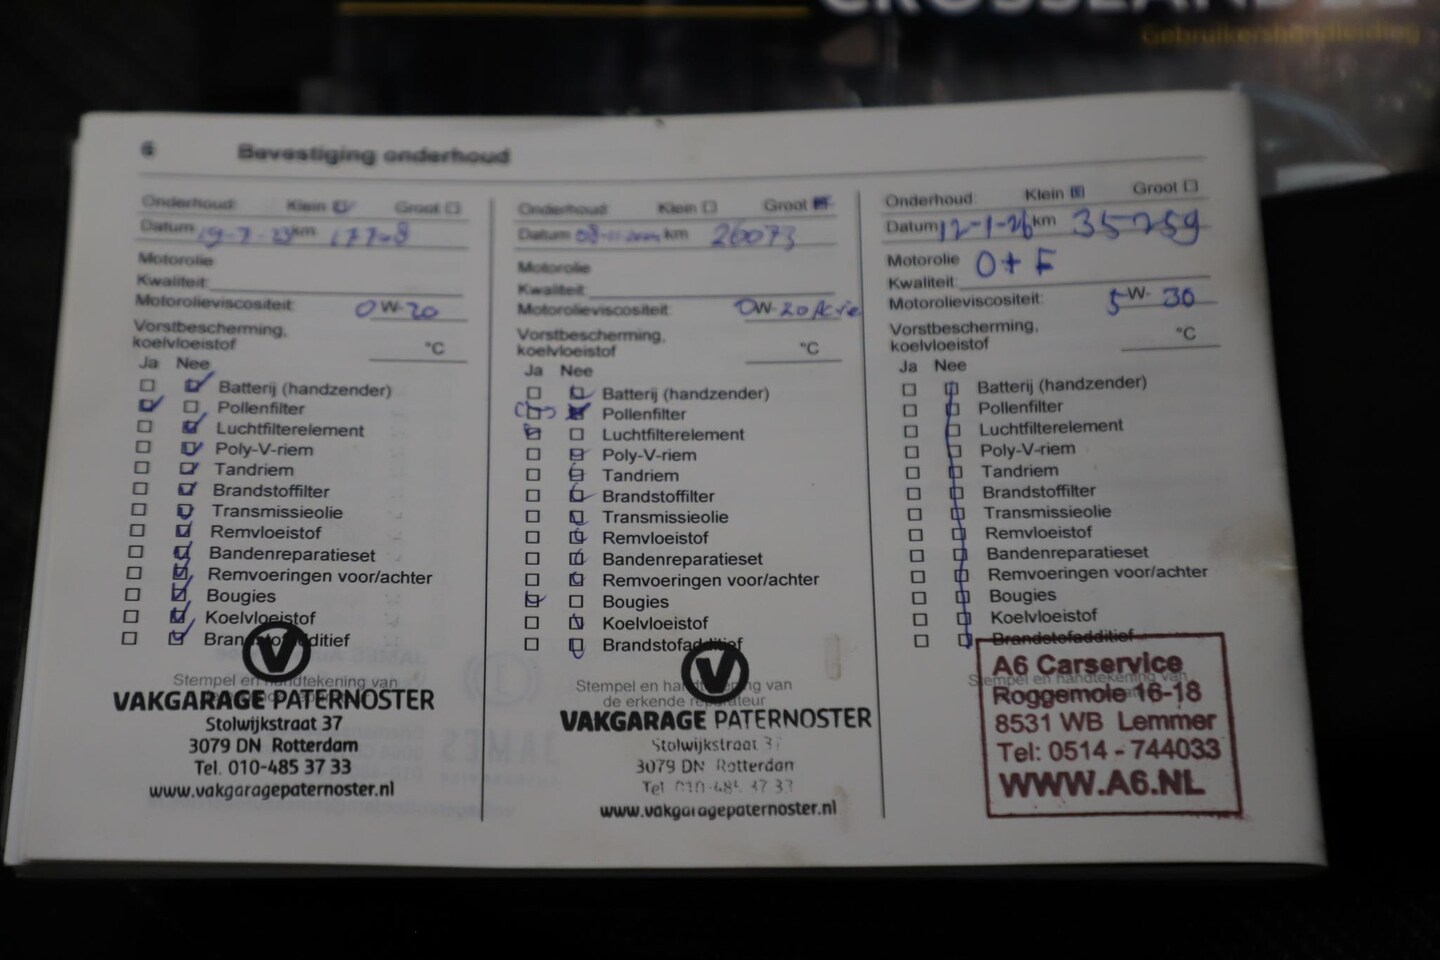 CROSSLAND
Gebruikershandleiding
6 Bevestiging onderhoud
Onderhoud: Klein Groot
Datum km
Motorolie
Kwaliteit:
Motorolieviscositeit: 0W-20
Vorstbescherming,
koelvloeistof °C
Ja Nee
Batterij (handzender)
Pollenfilter
Luchtfilterelement
Poly-V-riem
Tandriem
Brandstoffilter
Transmissieolie
Remvloeistof
Bandenreparatieset
Remvoeringen voor/achter
Bougies
Koelvloeistof
Brandstofadditief
Stempel en handtekening van
VAKGARAGE PATERNOSTER
Stolwijkstraat 37
3079 DN Rotterdam
Tel. 010-485 37 33
www.vakgaragepaternoster.nl
Onderhoud: Klein Groot
Datum 08-11- km 26073
Motorolie
Kwaliteit:
Motorolieviscositeit: 0W-20
Vorstbescherming,
koelvloeistof °C
Ja Nee
Batterij (handzender)
Pollenfilter
Luchtfilterelement
Poly-V-riem
Tandriem
Brandstoffilter
Transmissieolie
Remvloeistof
Bandenreparatieset
Remvoeringen voor/achter
Bougies
Koelvloeistof
Brandstofadditief
Stempel en handtekening van
de erkende reparateur
VAKGARAGE PATERNOSTER
Stolwijkstraat 37
3079 DN Rotterdam
Tel 010-485 37 33
www.vakgaragepaternoster.nl
Onderhoud: Klein Groot
Datum 12-1-26 km 35259
Motorolie O+F
Kwaliteit:
Motorolieviscositeit: 5-W-30
Vorstbescherming,
koelvloeistof °C
Ja Nee
Batterij (handzender)
Pollenfilter
Luchtfilterelement
Poly-V-riem
Tandriem
Brandstoffilter
Transmissieolie
Remvloeistof
Bandenreparatieset
Remvoeringen voor/achter
Bougies
Koelvloeistof
Brandstofadditief
Stempel en handtekening van
A6 Carservice
Roggemole 16-18
8531 WB Lemmer
Tel: 0514 - 744033
WWW.A6.NL